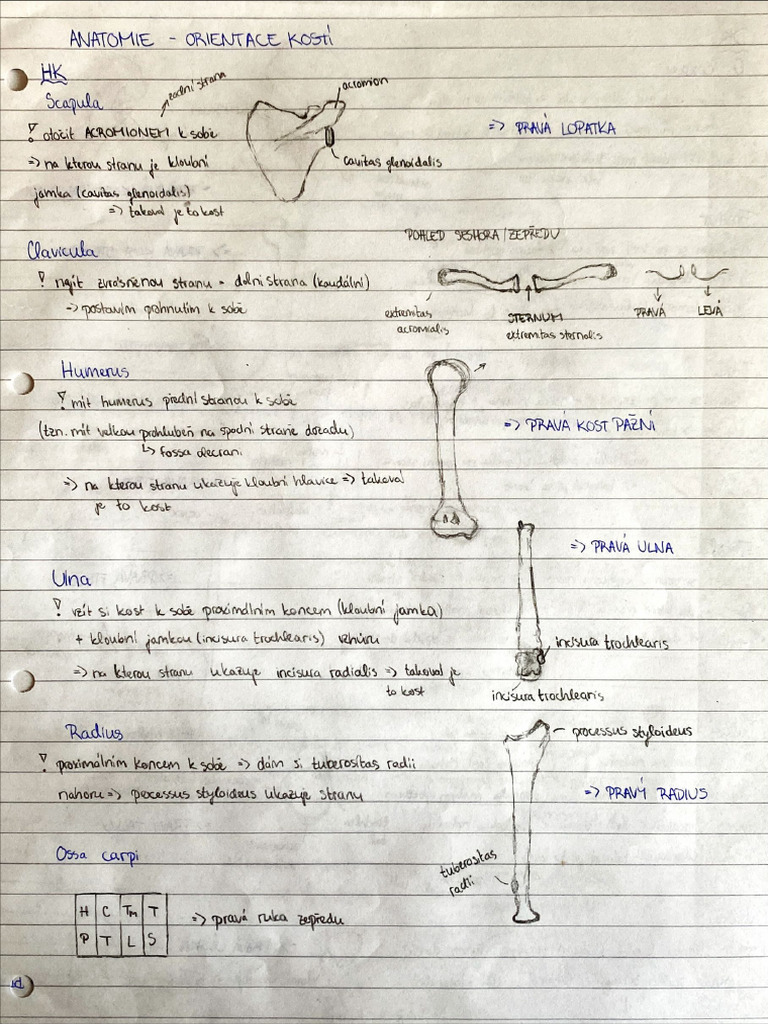 ANATOMIE - ORIENTACE KOSTÍ
HK
Scapula
zadní strana
acromion
! otočit ACROMIONEM k sobě
=> PRAVÁ LOPATKA
=> na kterou stranu je kloubní
cavitas glenoidalis
jamka (cavitas glenoidalis)
=> taková je to kost
POHLED SESHORA/ZEPŘEDU
Clavicula
! najít zvrásněnou stranu = dolní strana (kaudální)
=> postavím prohnutím k sobě
extremitas
acromialis
STERNUM
extremitas sternalis
PRAVÁ
LEVÁ
Humerus
! mít humerus přední stranou k sobě
(tzn. mít velkou prohlubeň na spodní straně dozadu)
=> PRAVÁ KOST PAŽNÍ
↳ fossa olecrani
=> na kterou stranu ukazuje kloubní hlavice => taková
je to kost
=> PRAVÁ ULNA
Ulna
! vzít si kost k sobě proximálním koncem (kloubní jamka)
+ kloubní jamkou (incisura trochlearis) vzhůru
incisura trochlearis
=> na kterou stranu ukazuje incisura radialis => taková je
to kost
incisura trochlearis
Radius
processus styloideus
! proximálním koncem k sobě => dám si tuberositas radii
nahoru => pocessus styloideus ukazuje stranu
=> PRAVÝ RADIUS
Ossa carpi
tuberositas
radii
H C Tm T
=> pravá ruka zepředu
P T L S